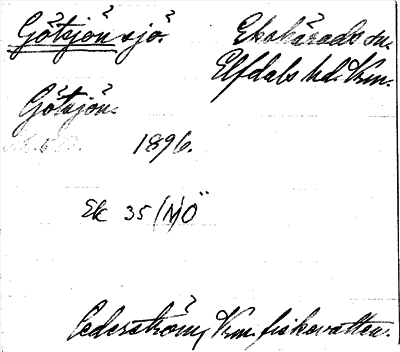 Götsjön sjö. Ekshärads sn.
Elfdals hd. Krm.
Götsjön.
1896.
Ek 35 (N)Ö
Cederström, Krm. fiskevatten.